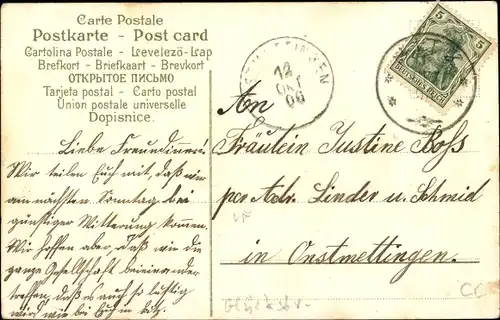 Carte Postale
Postkarte - Post card
Cartolina Postale - Levelező-Lap
Brefkort - Briefkaart - Brevkort
ОТКРЫТОЕ ПИСЬМО
Tarjeta postal - Carto postal
Union postale universelle
Dopisnice.
Liebe Freundinnen!
Wir teilen Euch mit, daß wir
am nächsten Sonntag bei
günstiger Witterung kommen.
Wir hoffen aber, daß wir die
ganze Gesellschaft beieinander
treffen, daß es auch so lustig
wird wie bei Euch im
12
OKT
06
5
5
DEUTSCHES REICH
An
Fräulein Justine Boss
per Adr. Linder u. Schmid
in Onstmettingen.